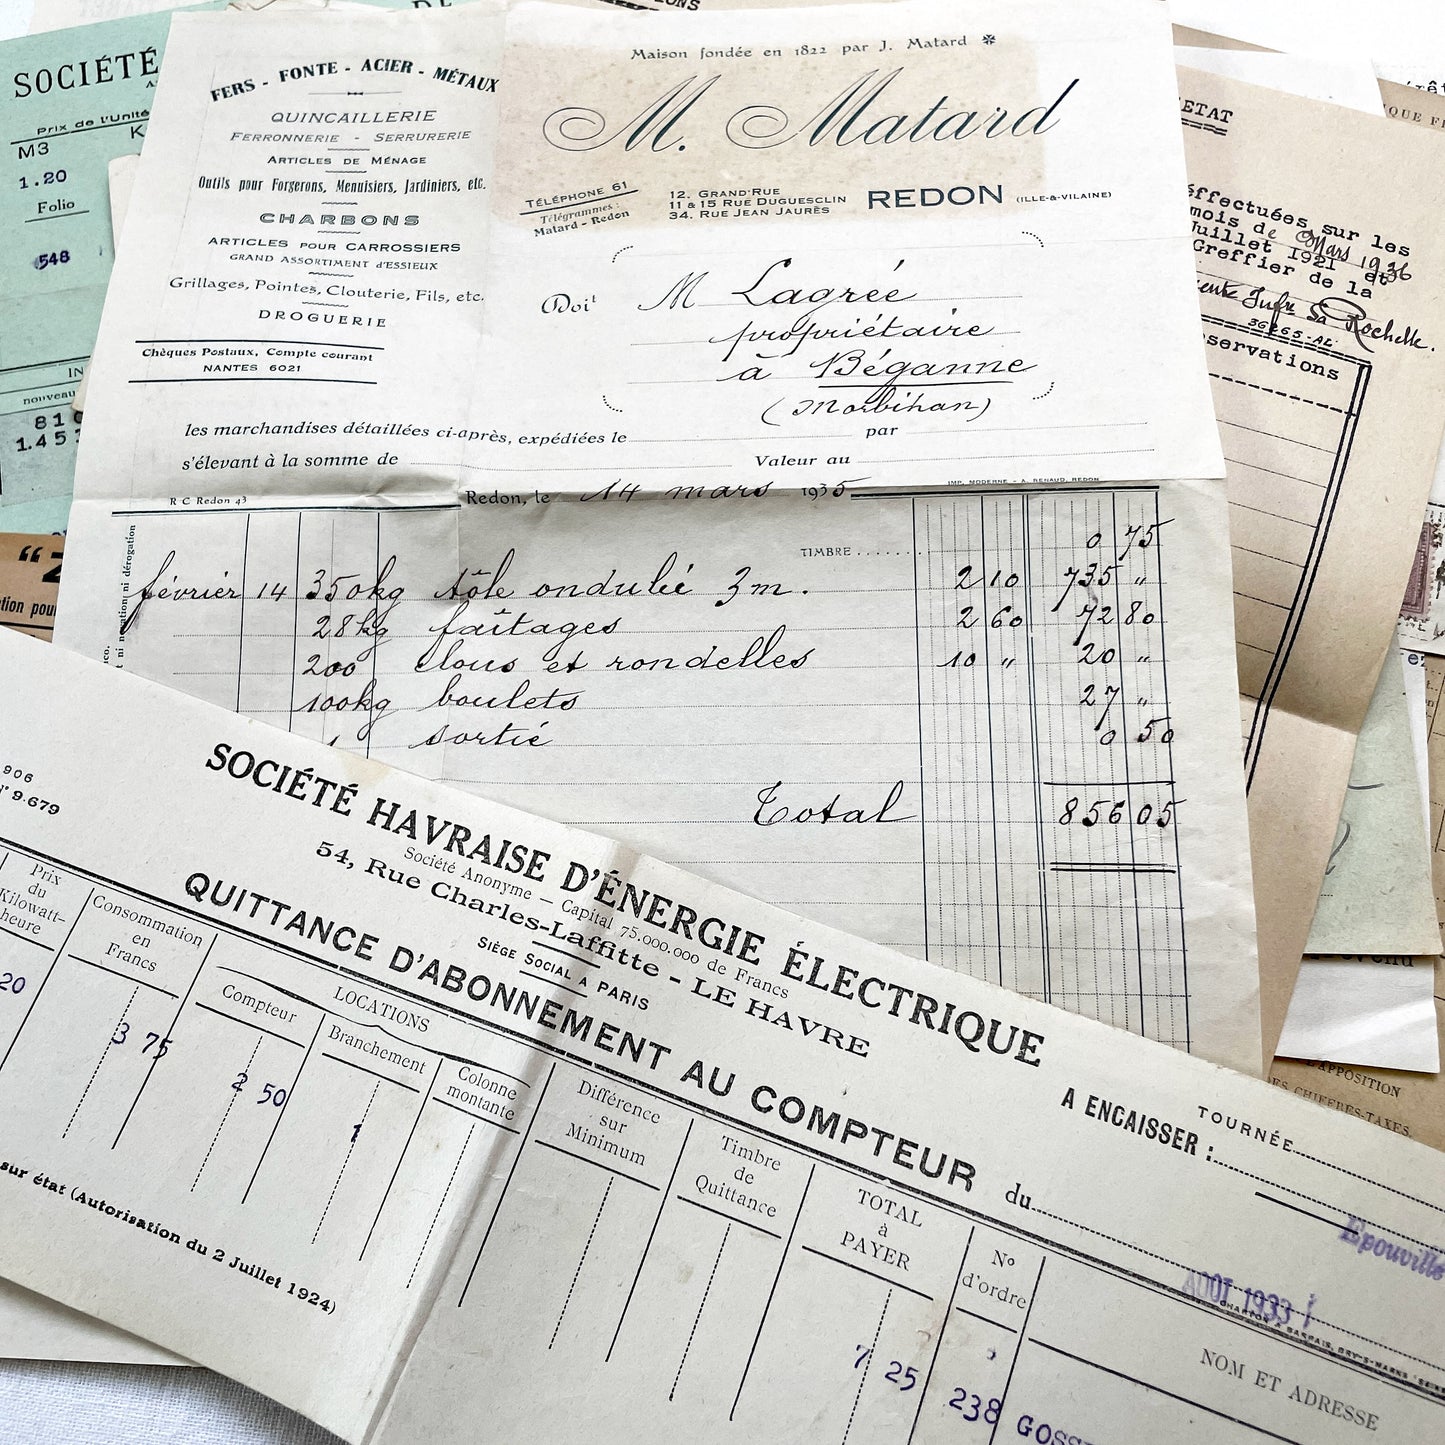 SOCIÉTÉ
Prix de l'Unité
M3 K
1.20
Folio
548
nouveau
1.45
FERS - FONTE - ACIER - MÉTAUX
QUINCAILLERIE
FERRONNERIE - SERRURERIE
ARTICLES DE MÉNAGE
Outils pour Forgerons, Menuisiers, Jardiniers, etc.
CHARBONS
ARTICLES POUR CARROSSIERS
GRAND ASSORTIMENT d'ESSIEUX
Grillages, Pointes, Clouterie, Fils, etc.
DROGUERIE
Chèques Postaux, Compte courant
NANTES 6021
Maison fondée en 1822 par J. Matard
M. Matard
TÉLÉPHONE 61
Télégrammes :
Matard - Redon
12. GRAND'RUE
11 & 15 RUE DUGUESCLIN
34. RUE JEAN JAURÈS
REDON (ILLE-&-VILAINE)
Doit M Lagrée
propriétaire
à Béganne
(Morbihan)
les marchandises détaillées ci-après, expédiées le par
s'élevant à la somme de Valeur au
R C Redon 43
IMP. MODERNE - A. RENAUD, REDON
Redon, le 14 mars 1935
ni novation ni dérogation
TIMBRE ....... 0 75
février 14 350kg tôle ondulée 3m. 2 10 735 "
28kg faîtages 2 60 72 80
200 clous et rondelles 10 " 20 "
100kg boulets 27 "
1 sortie 0 50
Total 856 05
ETAT
éffectuées sur les
mois de Mars 1936
Juillet 1921 et
Greffier de la
Rochelle.
servations
SOCIÉTÉ HAVRAISE D'ÉNERGIE ÉLECTRIQUE
Société Anonyme — Capital 75.000.000 de Francs
54, Rue Charles-Laffitte - LE HAVRE
SIÈGE SOCIAL A PARIS
QUITTANCE D'ABONNEMENT AU COMPTEUR du
A ENCAISSER :
TOURNÉE
Epouville
AOUT 1933
906
N° 9.679
Prix
du
Kilowatt-
heure
Consommation
en
Francs
LOCATIONS
Compteur
Branchement
Colonne
montante
Différence
sur
Minimum
Timbre
de
Quittance
TOTAL
à
PAYER
N°
d'ordre
NOM ET ADRESSE
20
3 75
2 50
1
7 25
238
sur état (Autorisation du 2 Juillet 1924)